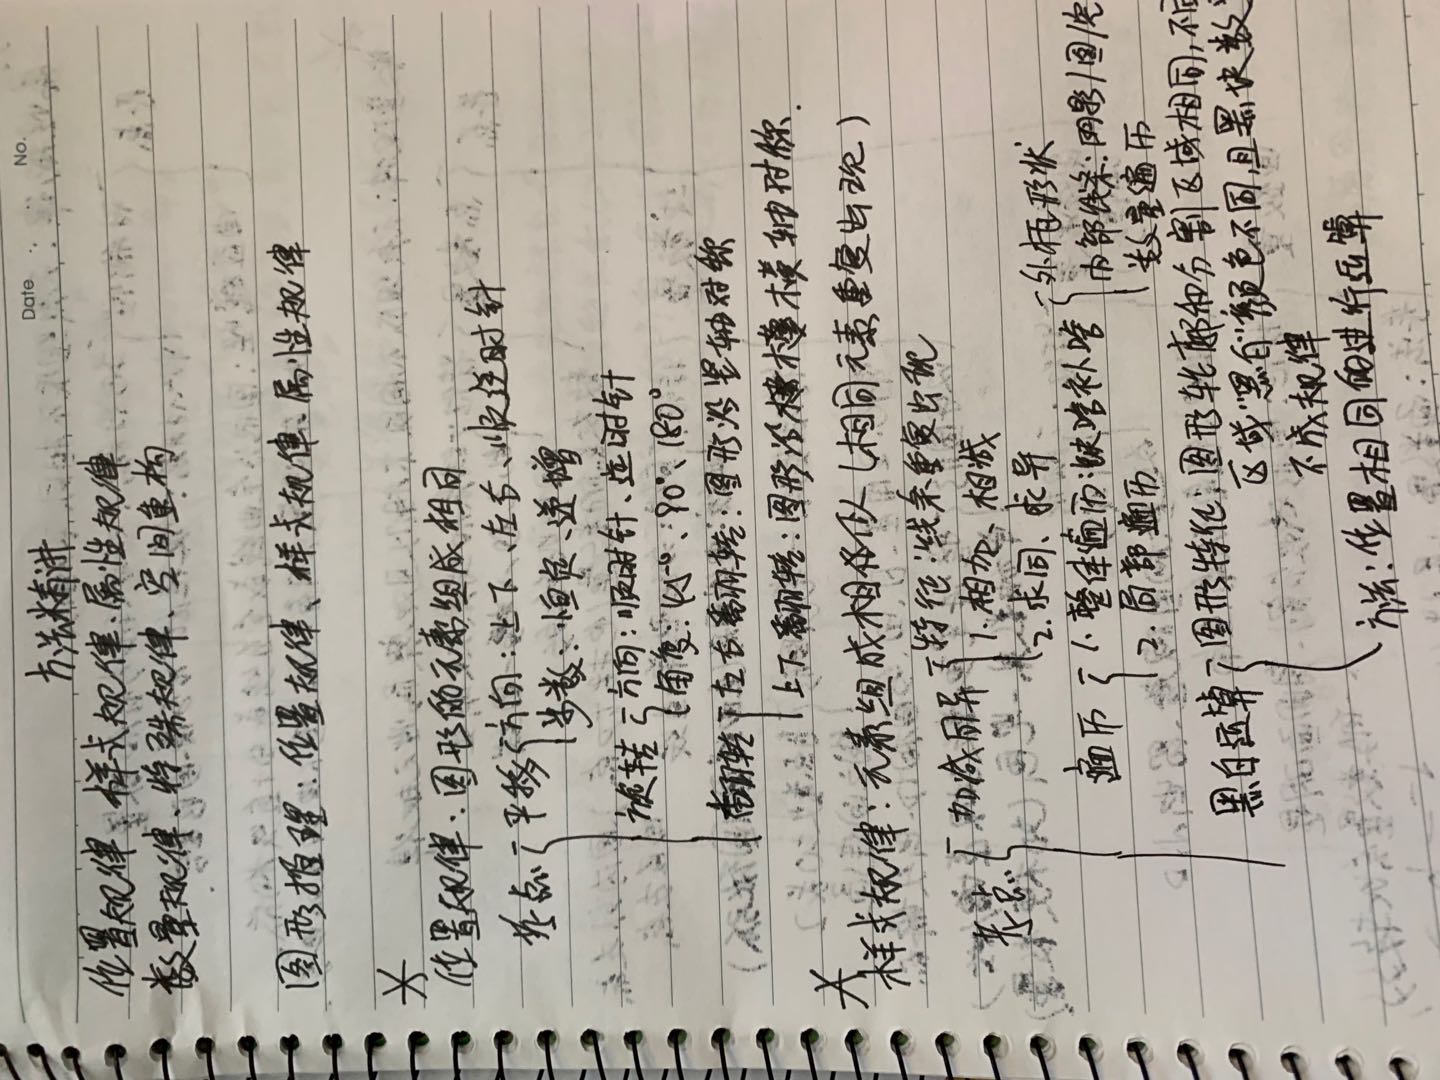 Date No.
方法精讲
位置规律、样式规律、属性规律
数量规律、特殊规律、空间重构
图形推理：位置规律、样式规律、属性规律
位置规律：图形的元素组成相同
考点 平移 方向：上下、左右、顺逆时针
步数：恒定、递增
旋转 方向：顺时针、逆时针
角度：45°、90°、180°
翻转 左右翻转：图形沿竖轴对称
上下翻转：图形沿横轴对称.
样式规律：元素组成相似（相同元素重复出现）
考点 加减同异 特征：线条重复出现
1. 相加、相减
2. 求同、求异
遍历 1. 整体遍历：缺啥补啥 外框形状
内部线条：阴影/图/
2. 局部遍历 数量遍历
黑白运算 图形特征：图形轮廓和分割区域相同，不
区域“黑白”颜色不同，且黑块数
不成规律
方法：位置相同的进行运算